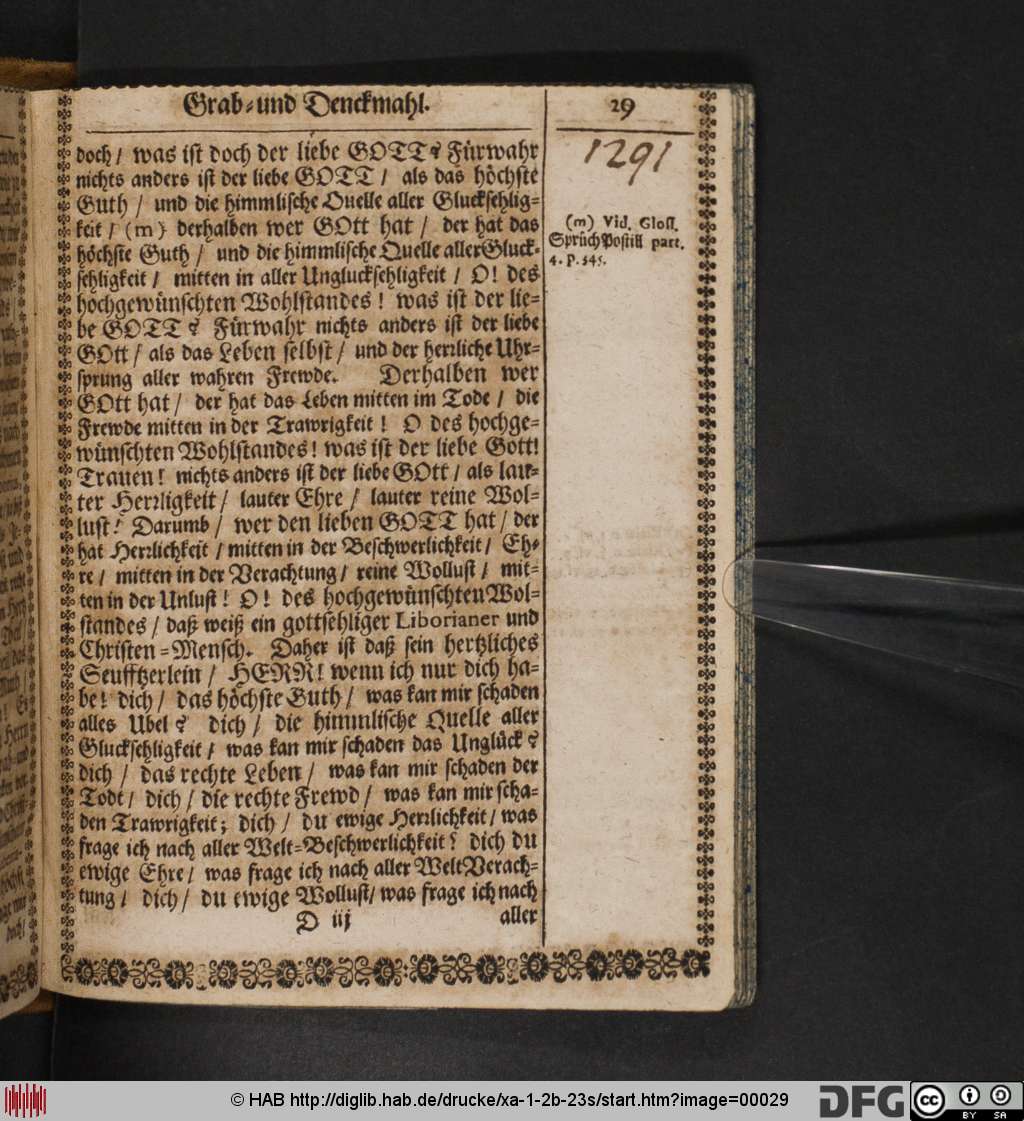 Grab- und Denckmahl.
29
1291
doch / was ist doch der liebe GOTT? Fürwahr
nichts anders ist der liebe GOTT / als das höchste
Guth / und die himmlische Quelle aller Glucksehlig-
keit / (m) derhalben wer GOtt hat / der hat das
höchste Guth / und die himmlische Quelle aller Gluck-
sehligkeit / mitten in aller Unglucksehligkeit / O! des
hochgewünschten Wohlstandes! was ist der lie-
be GOTT? Fürwahr nichts anders ist der liebe
GOtt / als das Leben selbst / und der herrliche Uhr-
sprung aller wahren Frewde. Derhalben wer
GOtt hat / der hat das Leben mitten im Tode / die
Frewde mitten in der Trawrigkeit! O des hochge-
wünschten Wohlstandes! was ist der liebe Gott!
Trauen! nichts anders ist der liebe GOtt / als lau-
ter Herrligkeit / lauter Ehre / lauter reine Wol-
lust! Darumb / wer den lieben GOTT hat / der
hat Herrlichkeit / mitten in der Beschwerlichkeit / Eh-
re / mitten in der Verachtung / reine Wollust / mit-
ten in der Unlust! O! des hochgewünschten Wol-
standes / daß weiß ein gottsehliger Liborianer und
Christen-Mensch. Daher ist daß sein hertzliches
Seufftzerlein / HERR! wenn ich nur dich ha-
be! dich / das höchste Guth / was kan mir schaden
alles Ubel? dich / die himmlische Quelle aller
Glucksehligkeit / was kan mir schaden das Unglück?
dich / das rechte Leben / was kan mir schaden der
Todt / dich / die rechte Frewd / was kan mir scha-
den Trawrigkeit; dich / du ewige Herrlichkeit / was
frage ich nach aller Welt-Beschwerlichkeit? dich du
ewige Ehre / was frage ich nach aller Welt Verach-
tung / dich / du ewige Wollust / was frage ich nach
D iij
aller
(m) Vid. Gloss.
Sprüch Postill part.
4. p. 545.
© HAB http://diglib.hab.de/drucke/xa-1-2b-23s/start.htm?image=00029
DFG
cc BY SA